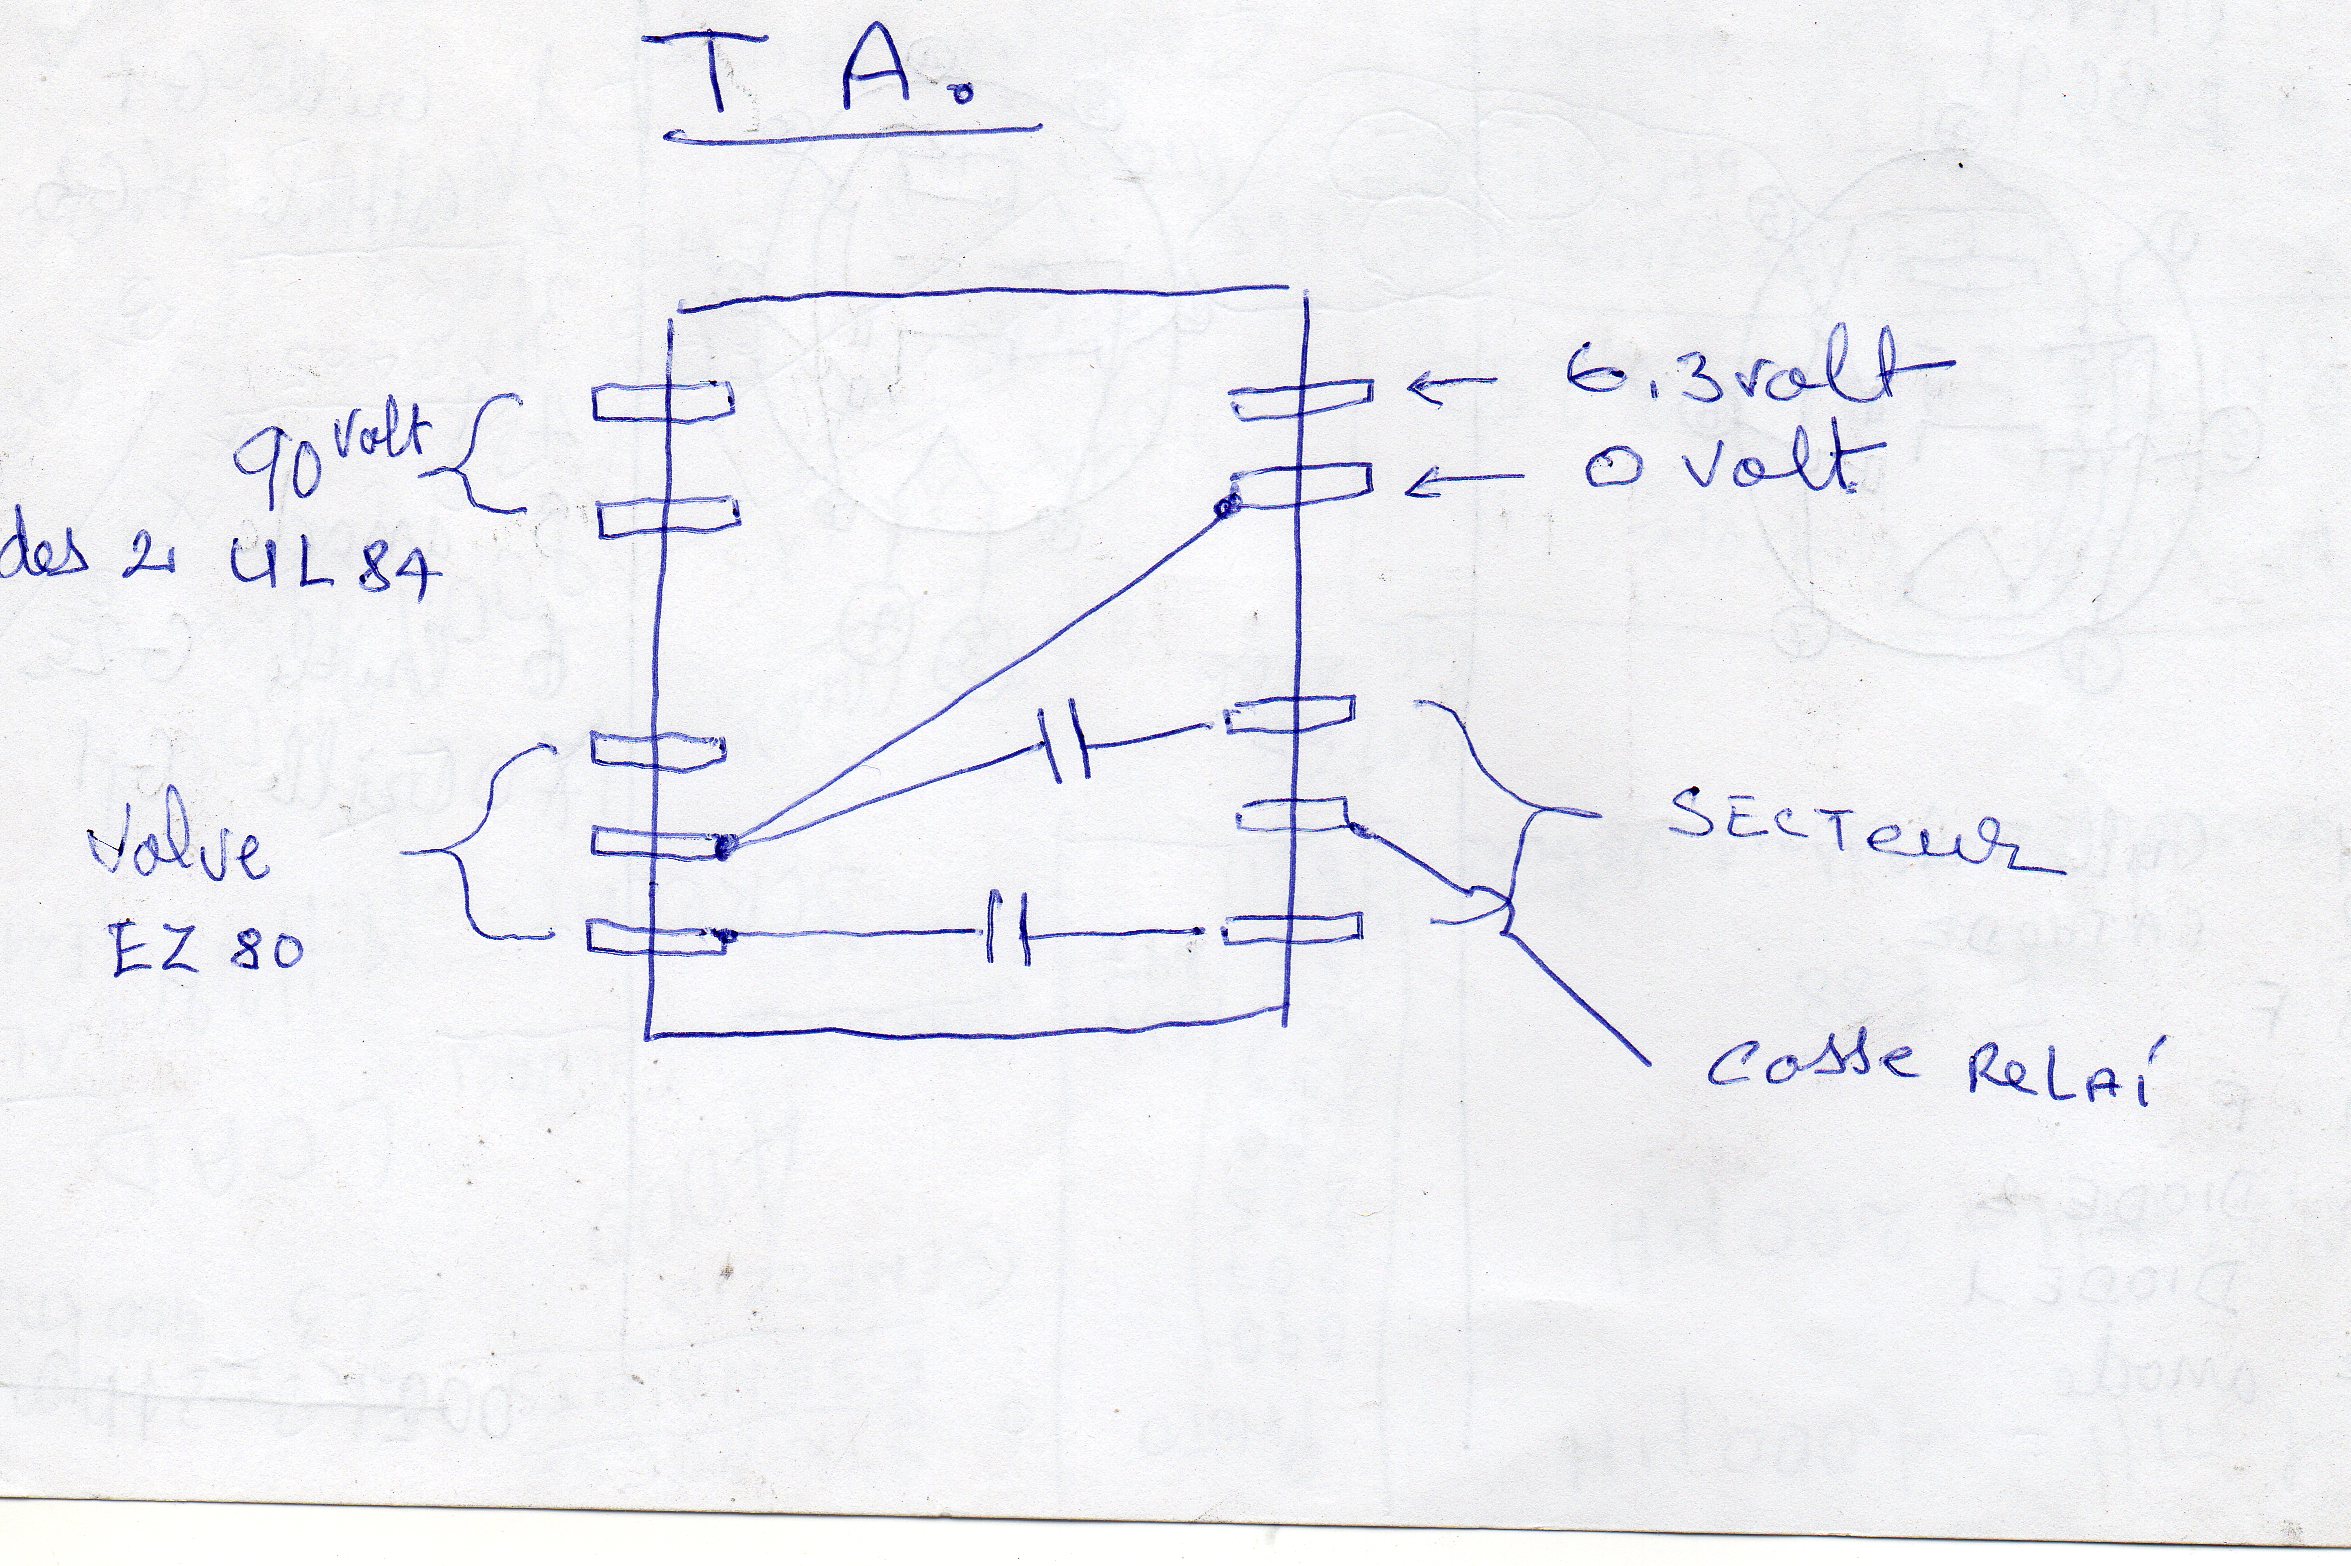 T A.
6.3 volt
0 volt
90 volt
des 2 UL 84
SECTeuR
Valve
EZ 80
Cosse ReLAi